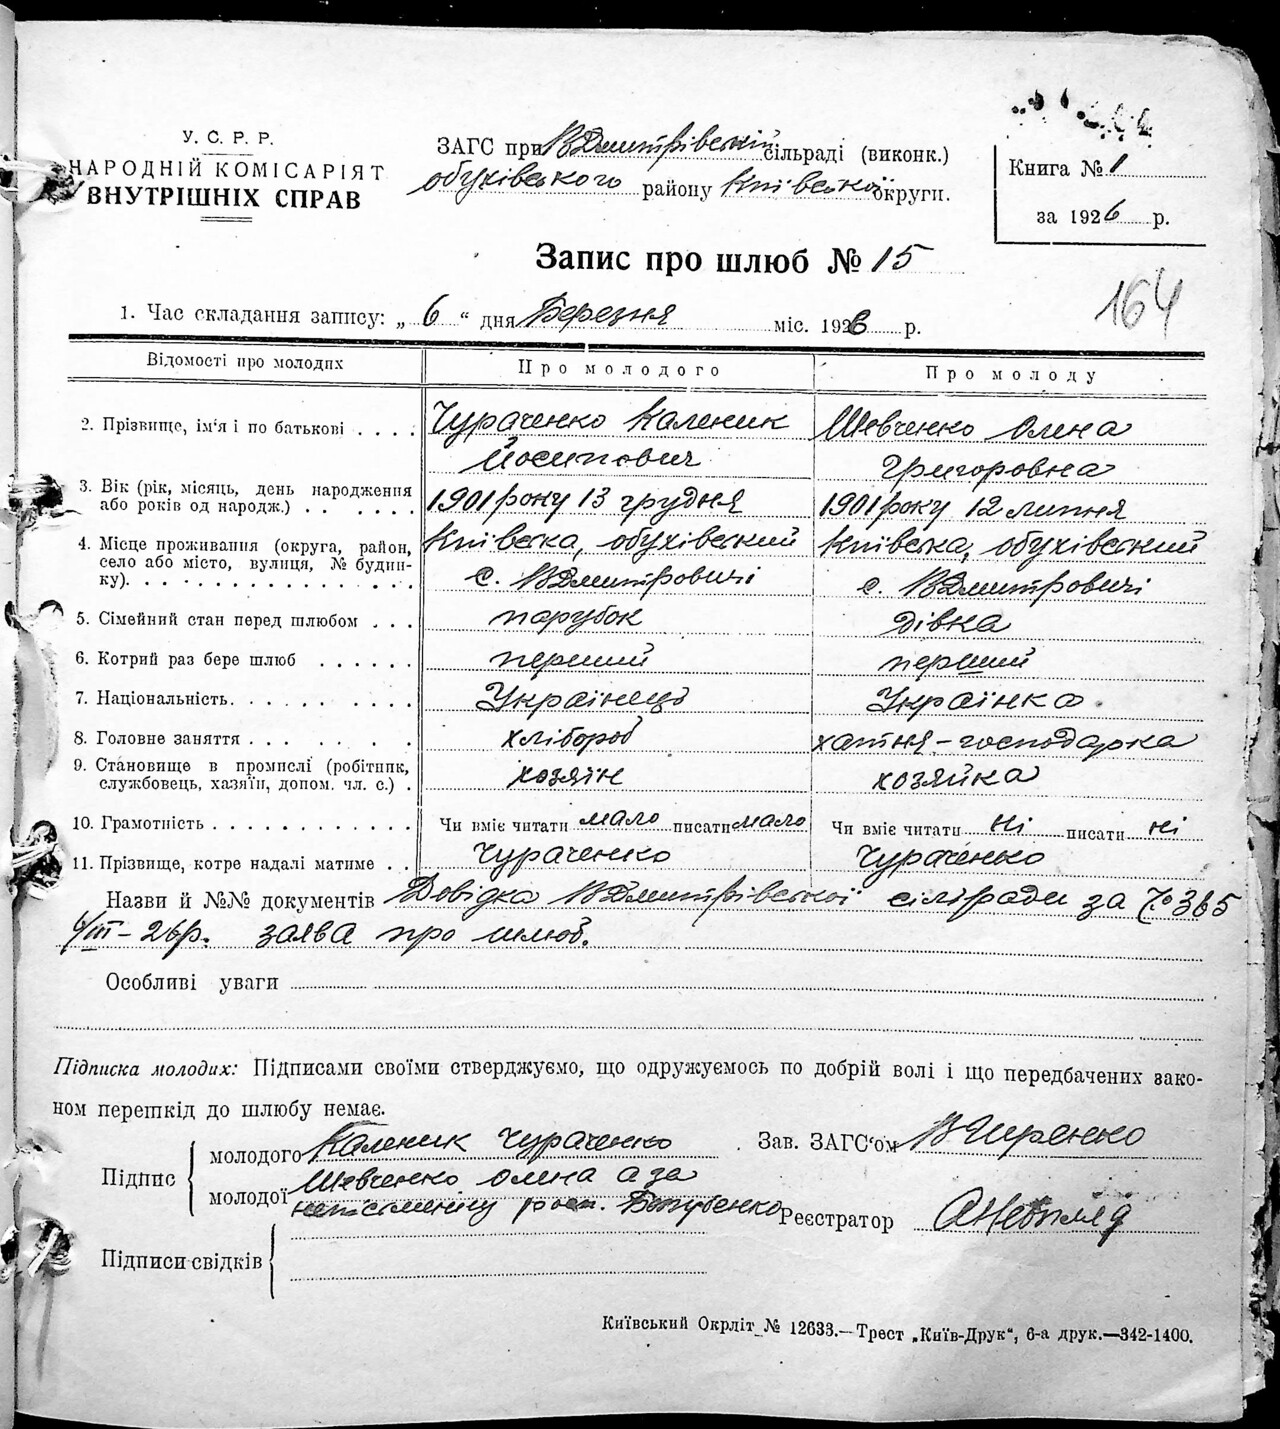 У. С. Р. Р.
НАРОДНІЙ КОМІСАРІЯТ
ВНУТРІШНІХ СПРАВ
ЗАГС при ВДмитрівській сільраді (виконк.)
обухівського району Київської округи.
Книга № 1
за 1926 р.
Запис про шлюб № 15
164
1. Час складання запису: „ 6 “ дня Березня міс. 1926 р.
Відомості про молодих Про молодого Про молоду
2. Прізвище, ім'я і по батькові . . . . Чураченко Каленик Шевченко Олена
Йосипович Григоровна
3. Вік (рік, місяць, день народження 1901 року 13 грудня 1901 року 12 липня
або років од народж.) . . . . . .
4. Місце проживання (округа, район, Київська, обухівський Київська, обухівський
село або місто, вулиця, № будин- с. ВДмитровичі с. ВДмитровичі
ку). . . . . . . . . . . . . .
5. Сімейний стан перед шлюбом . . . парубок дівка
6. Котрий раз бере шлюб . . . . . . перший перший
7. Національність. . . . . . . . . . Українець Українка
8. Головне заняття . . . . . . . . хлібороб хатня-господарка
9. Становище в промислі (робітник, хозяїн хозяйка
службовець, хазяїн, допом. чл. с.) .
10. Грамотність . . . . . . . . . . . . Чи вміє читати мало писати мало Чи вміє читати ні писати ні
11. Прізвище, котре надалі матиме . . Чураченко Чураченько
Назви й №№ документів Довідка ВДмитрівської сілради за № 365
6/III-26р. заява про шлюб.
Особливі уваги
Підписка молодих: Підписами своїми стверджуємо, що одружуємось по добрій волі і що передбачених зако-
ном перешкід до шлюбу немає.
Підпис молодого Каленик Чураченко Зав. ЗАГС'ом
молодої Шевченко Олена а за
неписьменну росп. Реєстратор
Підписи свідків
Київський Окрліт № 12633.—Трест „Київ-Друк“, 6-а друк.—342-1400.